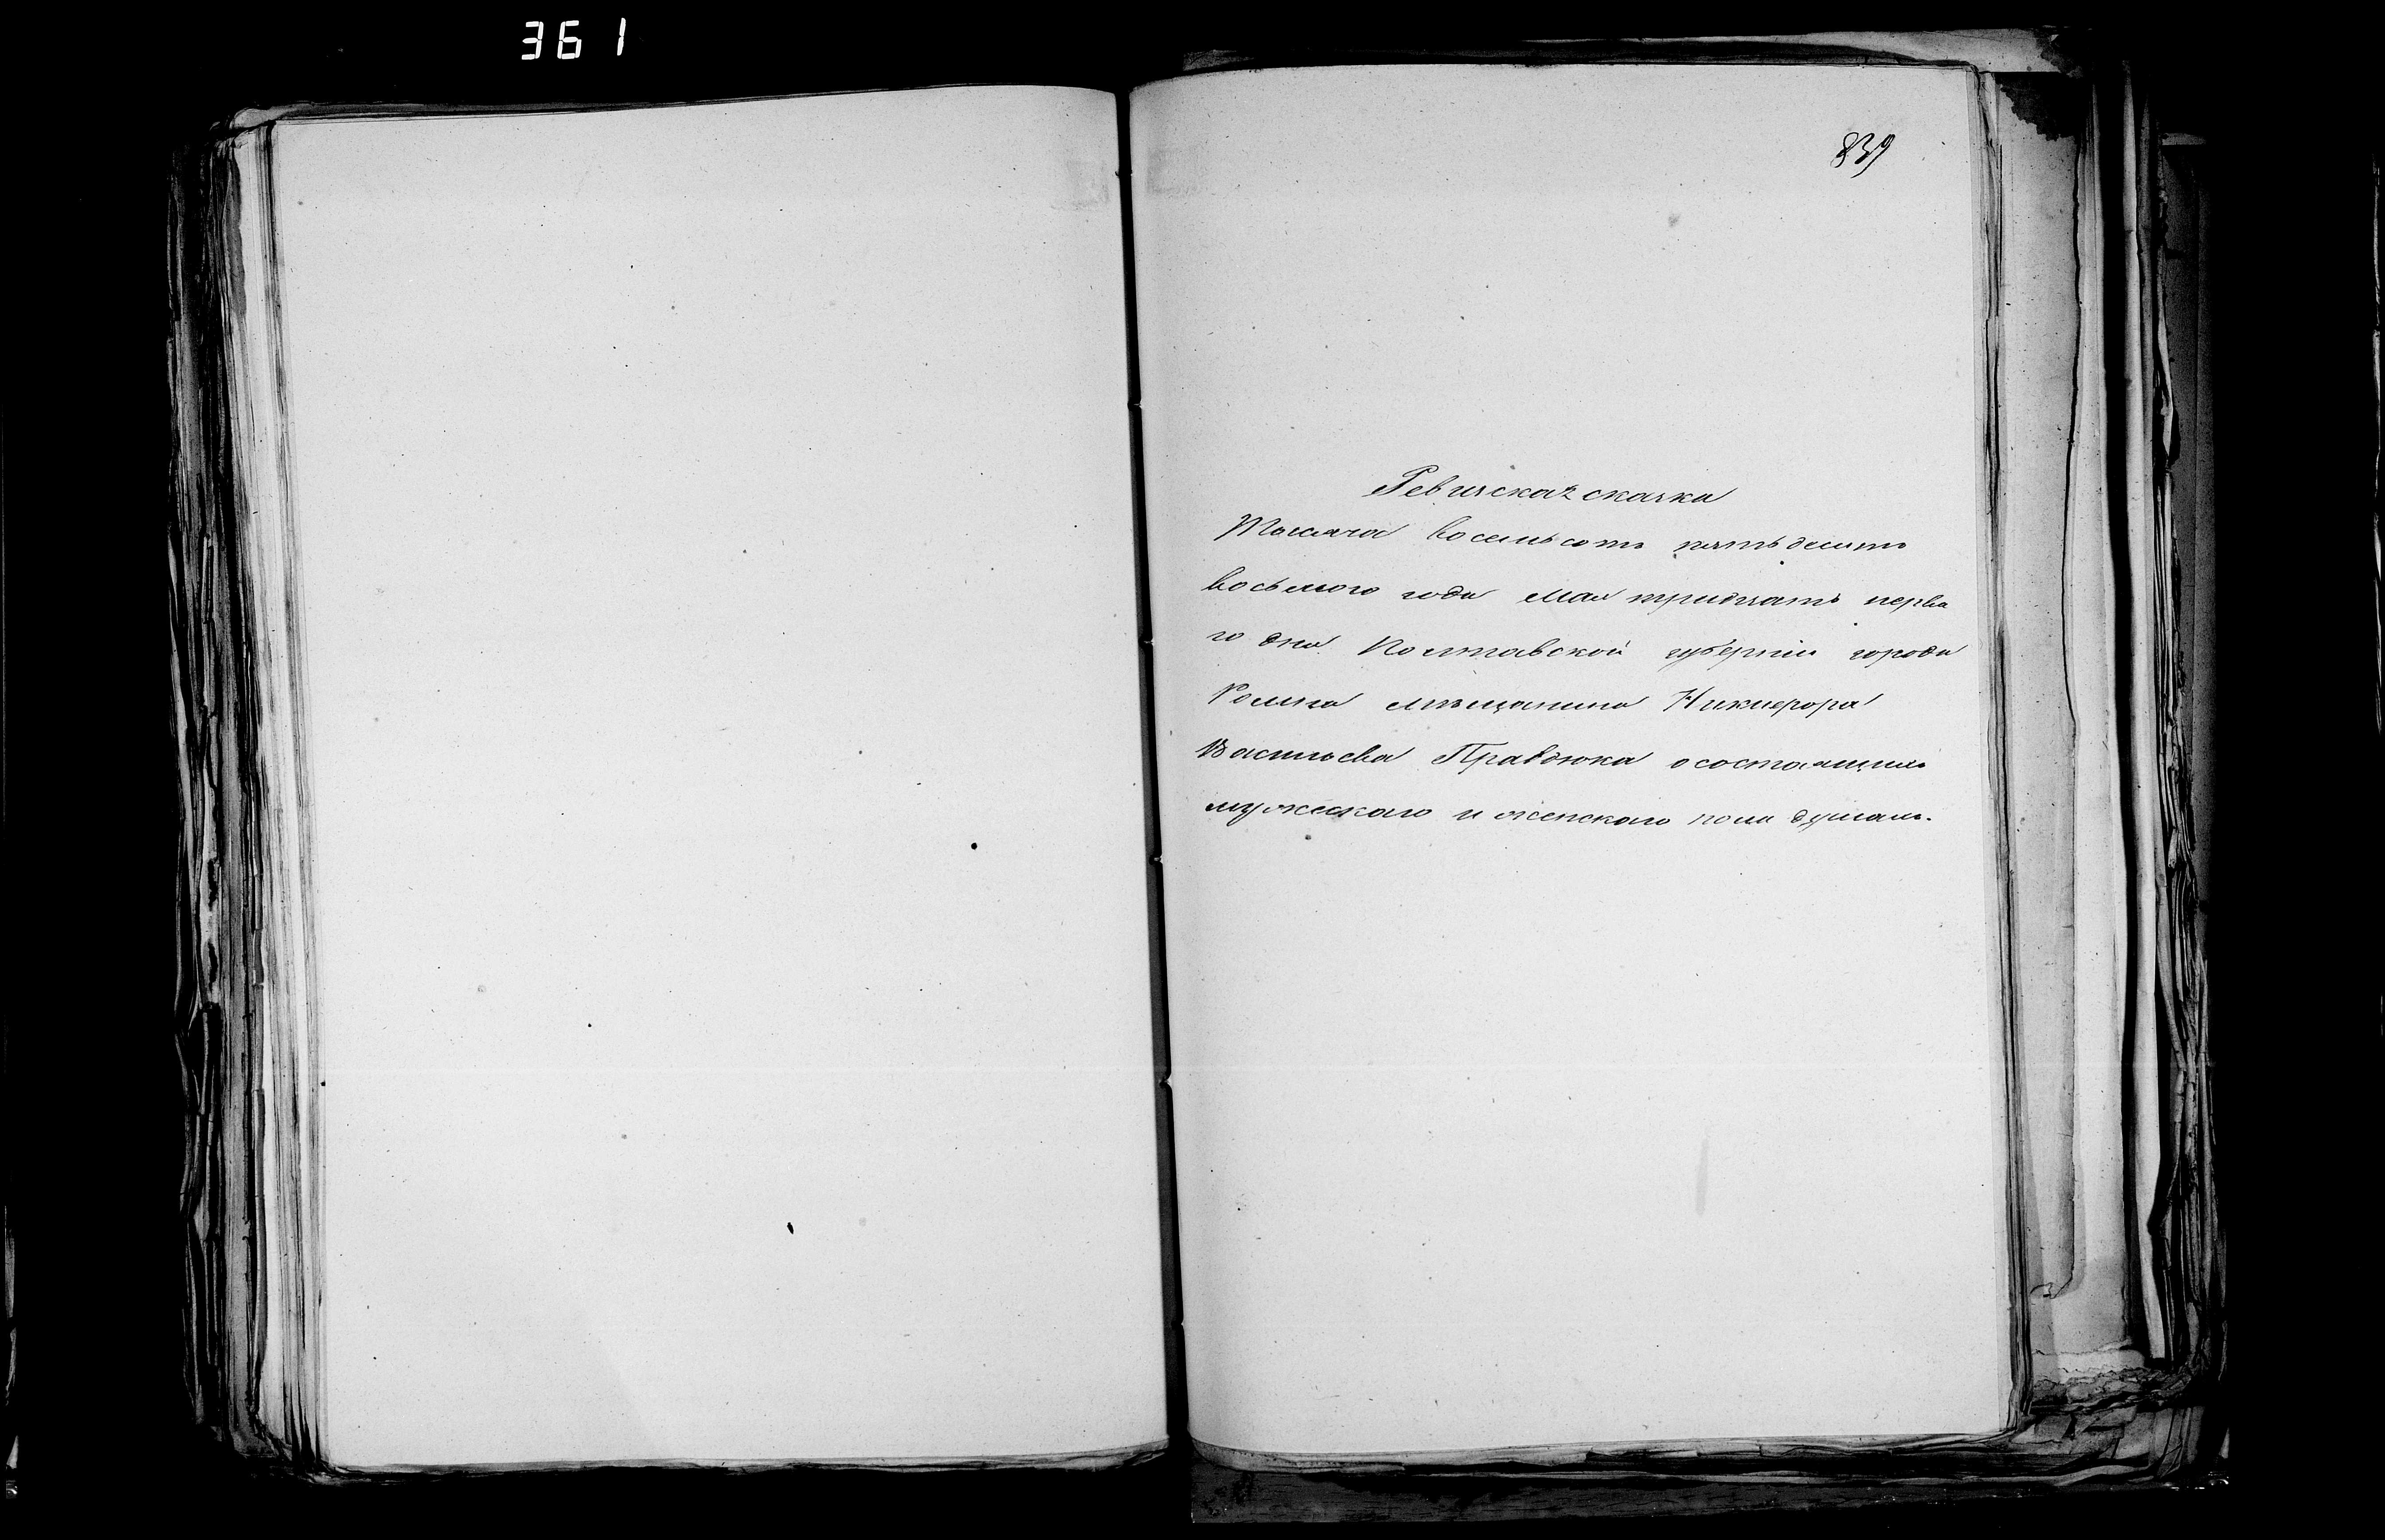 361
839
Ревизская сказка
Тысяча восемьсотъ пятьдесятъ
восьмого года Мая тридцать перва
го дня Полтавской губернiи города
Ромна мѣщанина Никифора
Васильева Правдюка о состоящихъ
мужескаго и женскаго пола душахъ.